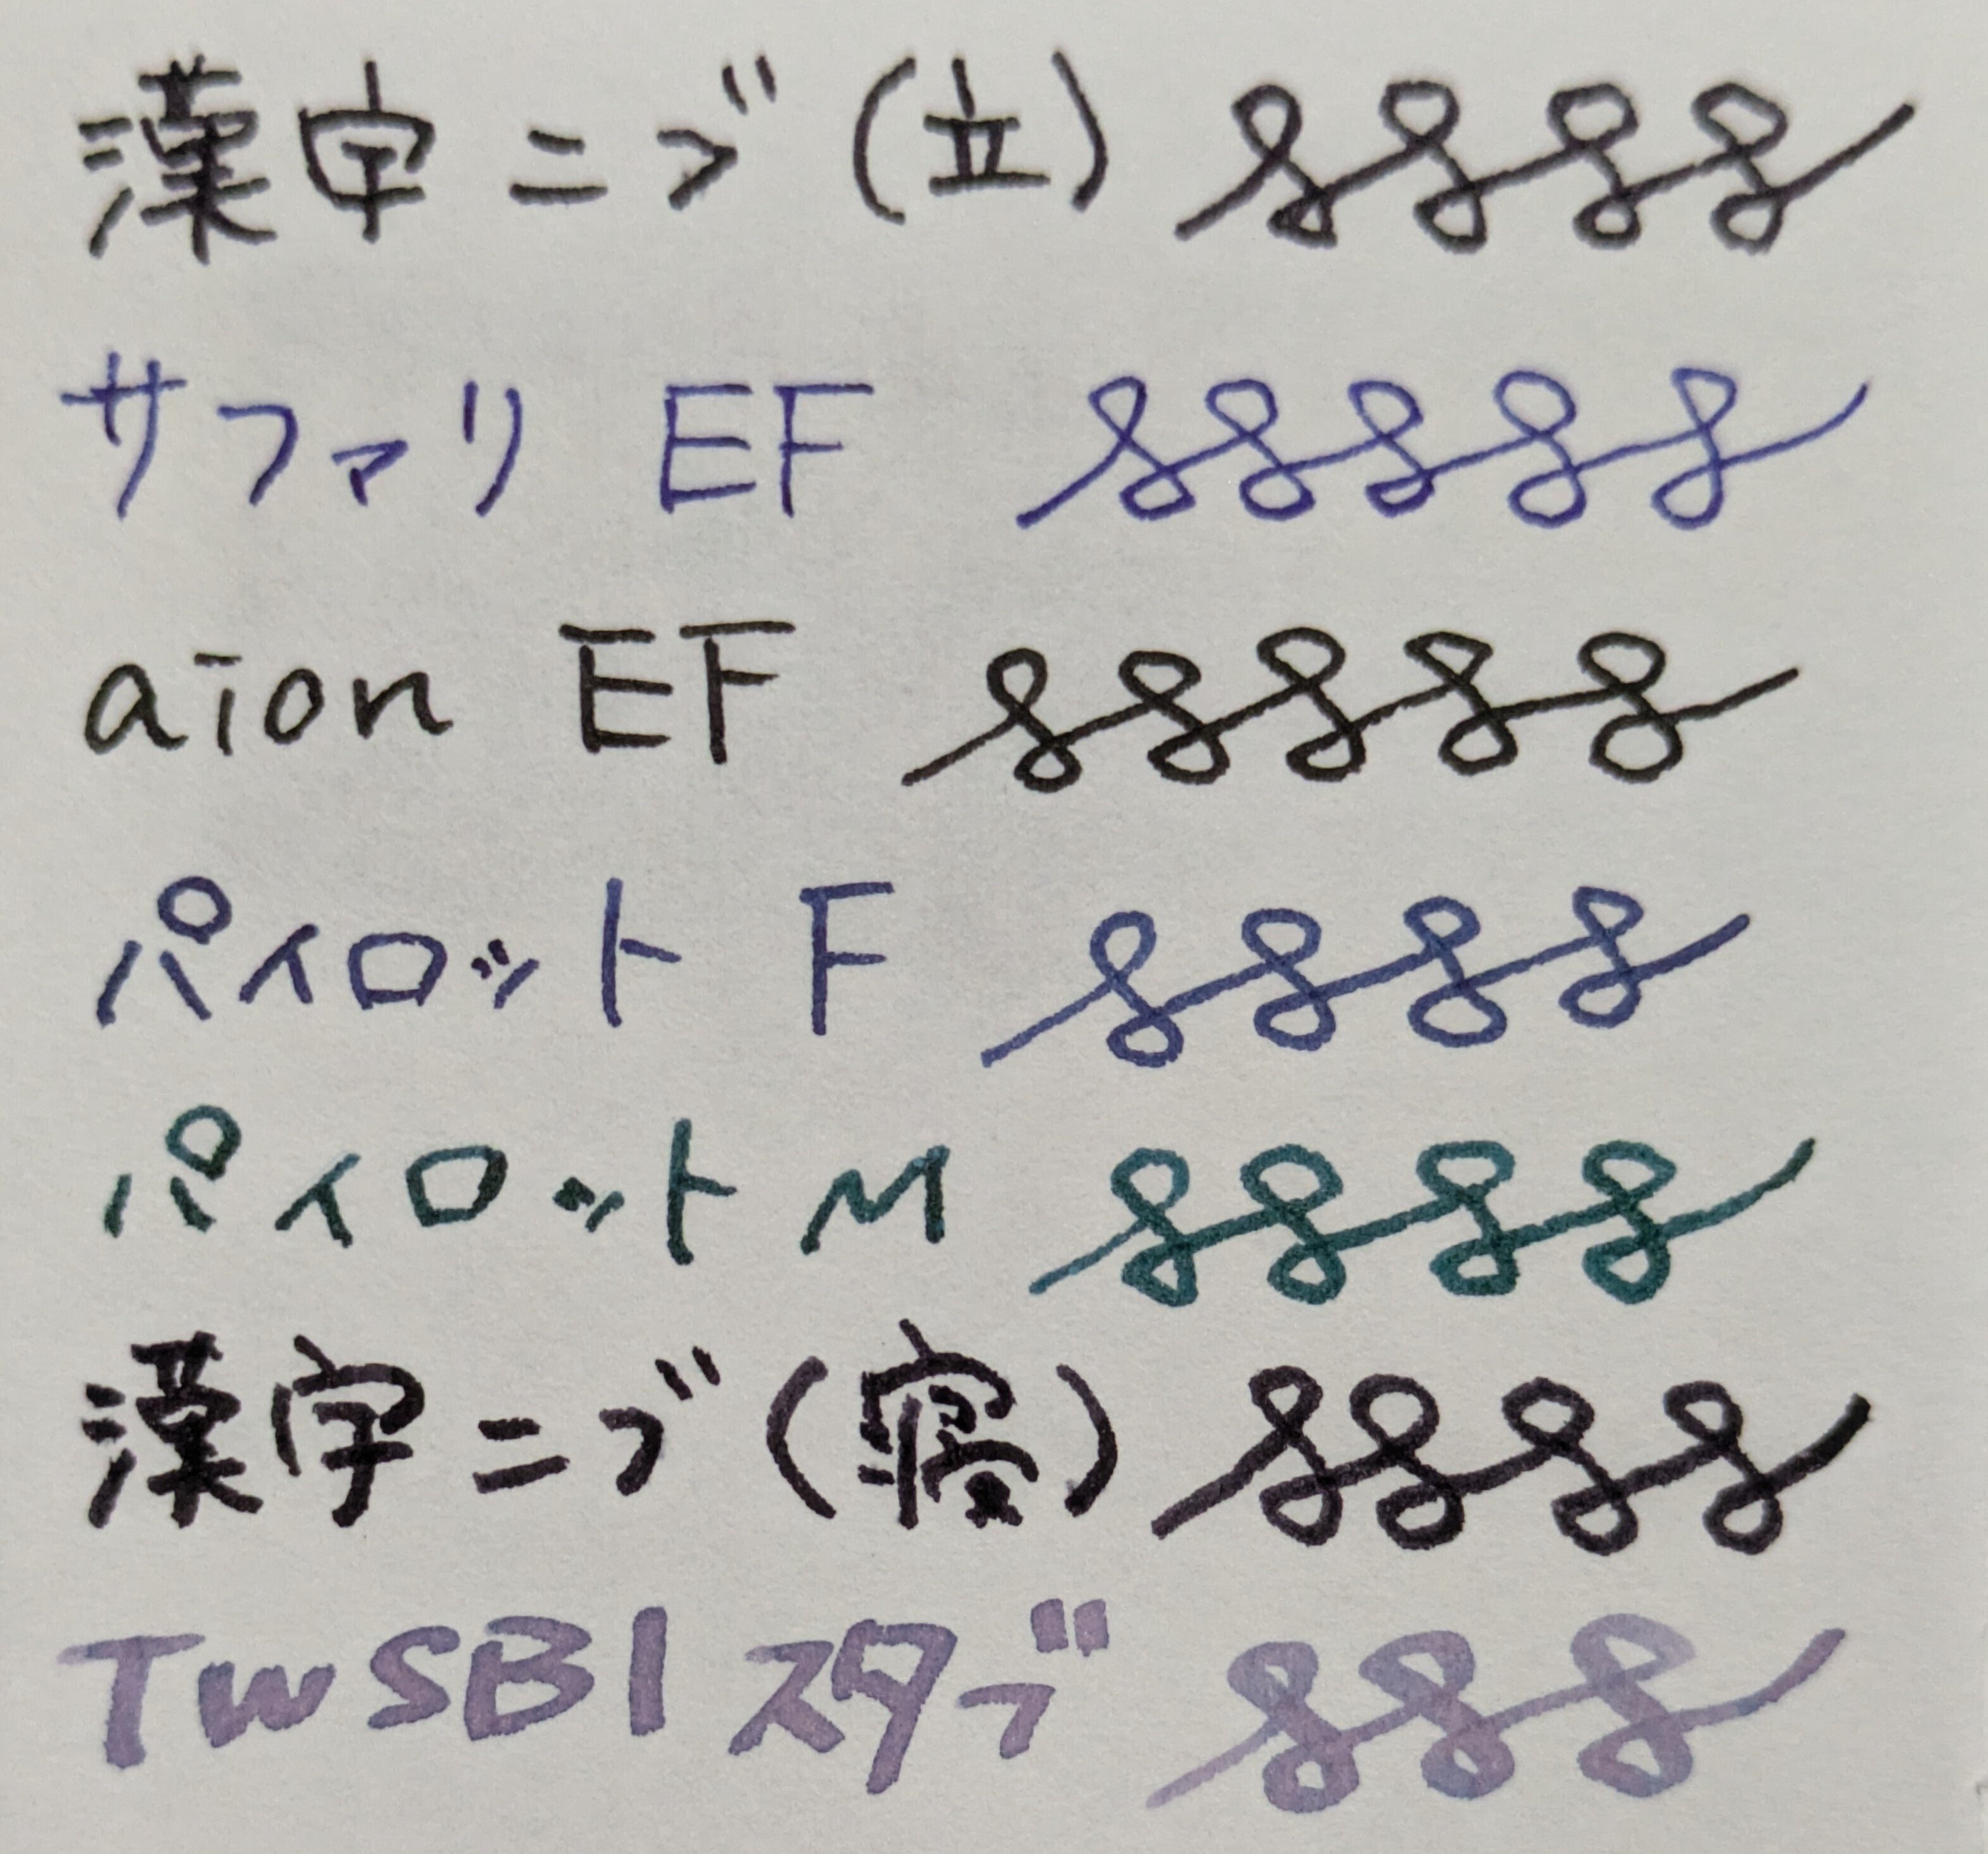 漢字ニブ(立)
サファリ EF
aion EF
パイロット F
パイロット M
漢字ニブ(寝)
TWSBI スタブ